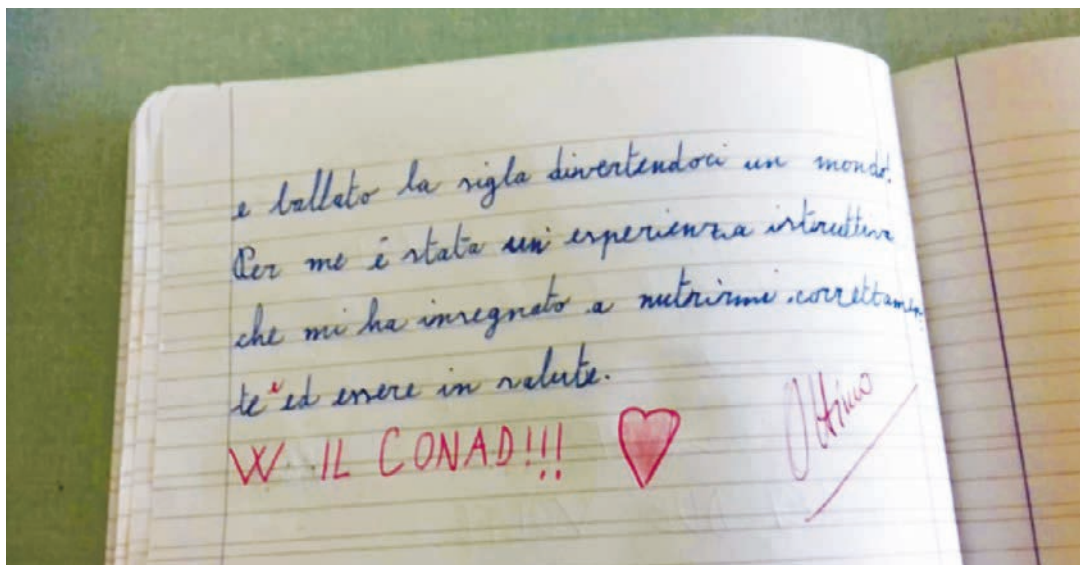 e ballato la sigla divertendoci un mondo.
Per me é stata un' esperienza istruttiva
che mi ha insegnato a nutrirmi correttamen
te e ed essere in salute.
W IL CONAD!!!
Ottimo